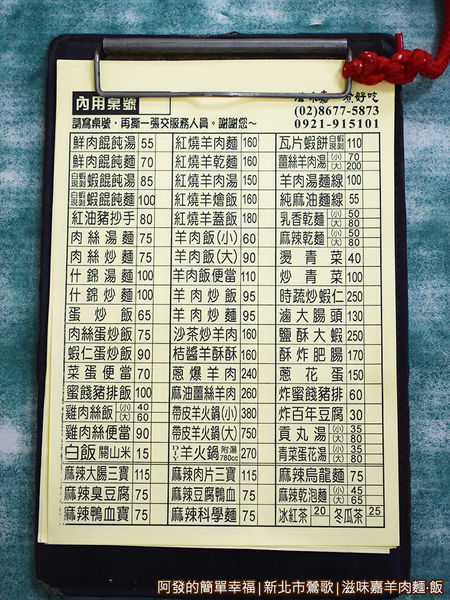 內用桌號
滋味嘉 煮好吃
(02)8677-5873
請寫桌號,再撕一張交服務人員。謝謝您~
0921-915101
鮮肉餛飩湯 55 紅燒羊肉麵 160 瓦片蝦餅 白蝦現剝 110
鮮肉餛飩麵 70 紅燒羊乾麵 160 薑絲羊肉湯 (小) 70 (大) 200
白蝦現剝 蝦餛飩湯 85 紅燒羊肉湯 150 羊肉湯麵線 100
白蝦現剝 蝦餛飩麵 100 紅燒羊燴飯 160 純麻油麵線 55
紅油豬抄手 80 紅燒羊蓋飯 180 乳香乾麵 (小) 50 (大) 80
肉絲湯麵 75 羊肉飯(小) 60 麻辣乾麵 (小) 50 (大) 80
肉絲炒麵 75 羊肉飯(大) 90 燙青菜 40
什錦湯麵 100 羊肉飯便當 110 炒青菜 100
什錦炒麵 100 羊肉炒飯 95 時蔬炒蝦仁 250
蛋炒飯 65 羊肉炒麵 95 滷大腸頭 130
肉絲蛋炒飯 75 沙茶炒羊肉 160 鹽酥大蝦 250
蝦仁蛋炒飯 90 桔醬羊酥酥 160 酥炸肥腸 170
菜蛋便當 70 蔥爆羊肉 240 蔥花蛋 150
蜜餞豬排飯 100 麻油薑羊肉 260 炸蜜餞豬排 60
雞肉絲飯 (小) 40 (大) 60 帶皮羊火鍋(小) 380 炸百年豆腐 30
雞肉絲便當 90 帶皮羊火鍋(大) 750 貢丸湯 (小) 35 (大) 80
白飯 關山米 15 羊火鍋 附湯780cc 270 青菜蛋花湯 (小) 35 (大) 80
麻辣大腸三寶 115 麻辣肉片三寶 115 麻辣烏龍麵 75
麻辣臭豆腐 75 麻辣豆腐鴨血 75 麻辣乾泡麵 (小) 45 (大) 65
麻辣鴨血寶 75 麻辣科學麵 75 冰紅茶 20 冬瓜茶 25
阿發的簡單幸福|新北市鶯歌|滋味嘉羊肉麵·飯